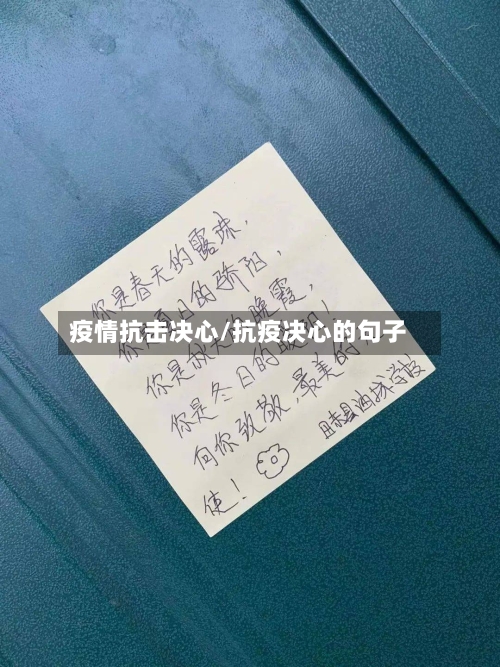 你是春天的露珠，
你是夏日的骄阳，
疫情抗击决心/抗疫决心的句子
你是秋天的晚霞，
你是冬日的
向你致敬，最美的
使！
县油城学校